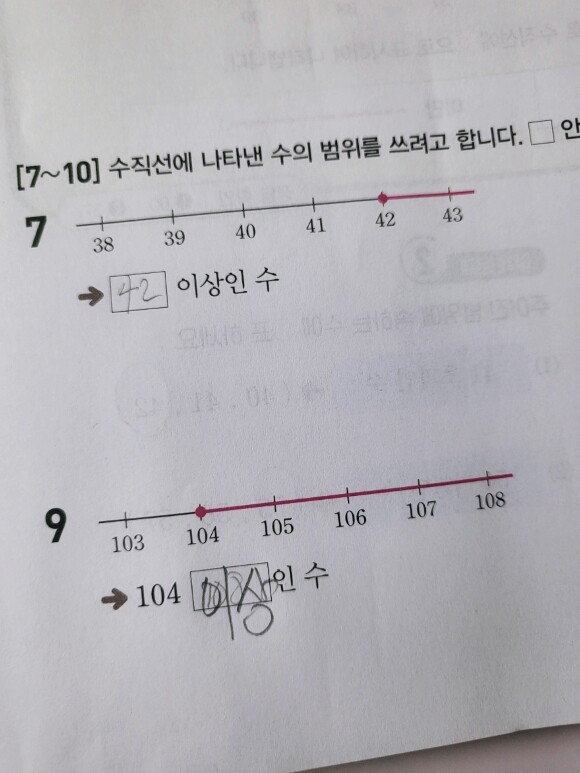 [7~10] 수직선에 나타낸 수의 범위를 쓰려고 합니다. □ 안
7
38 39 40 41 42 43
➔ 42 이상인 수
9
103 104 105 106 107 108
➔ 104 이상인 수